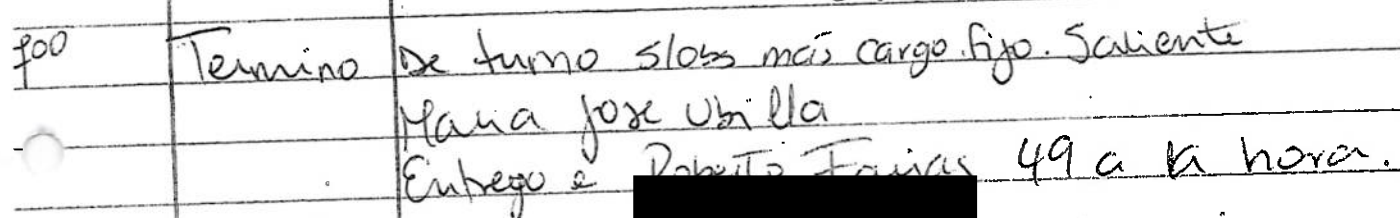 700 Termino De turno s/obs más cargo fijo. Saliente
Maria Jose Ubilla
Entrego a Roberto Farias 49 a la hora.